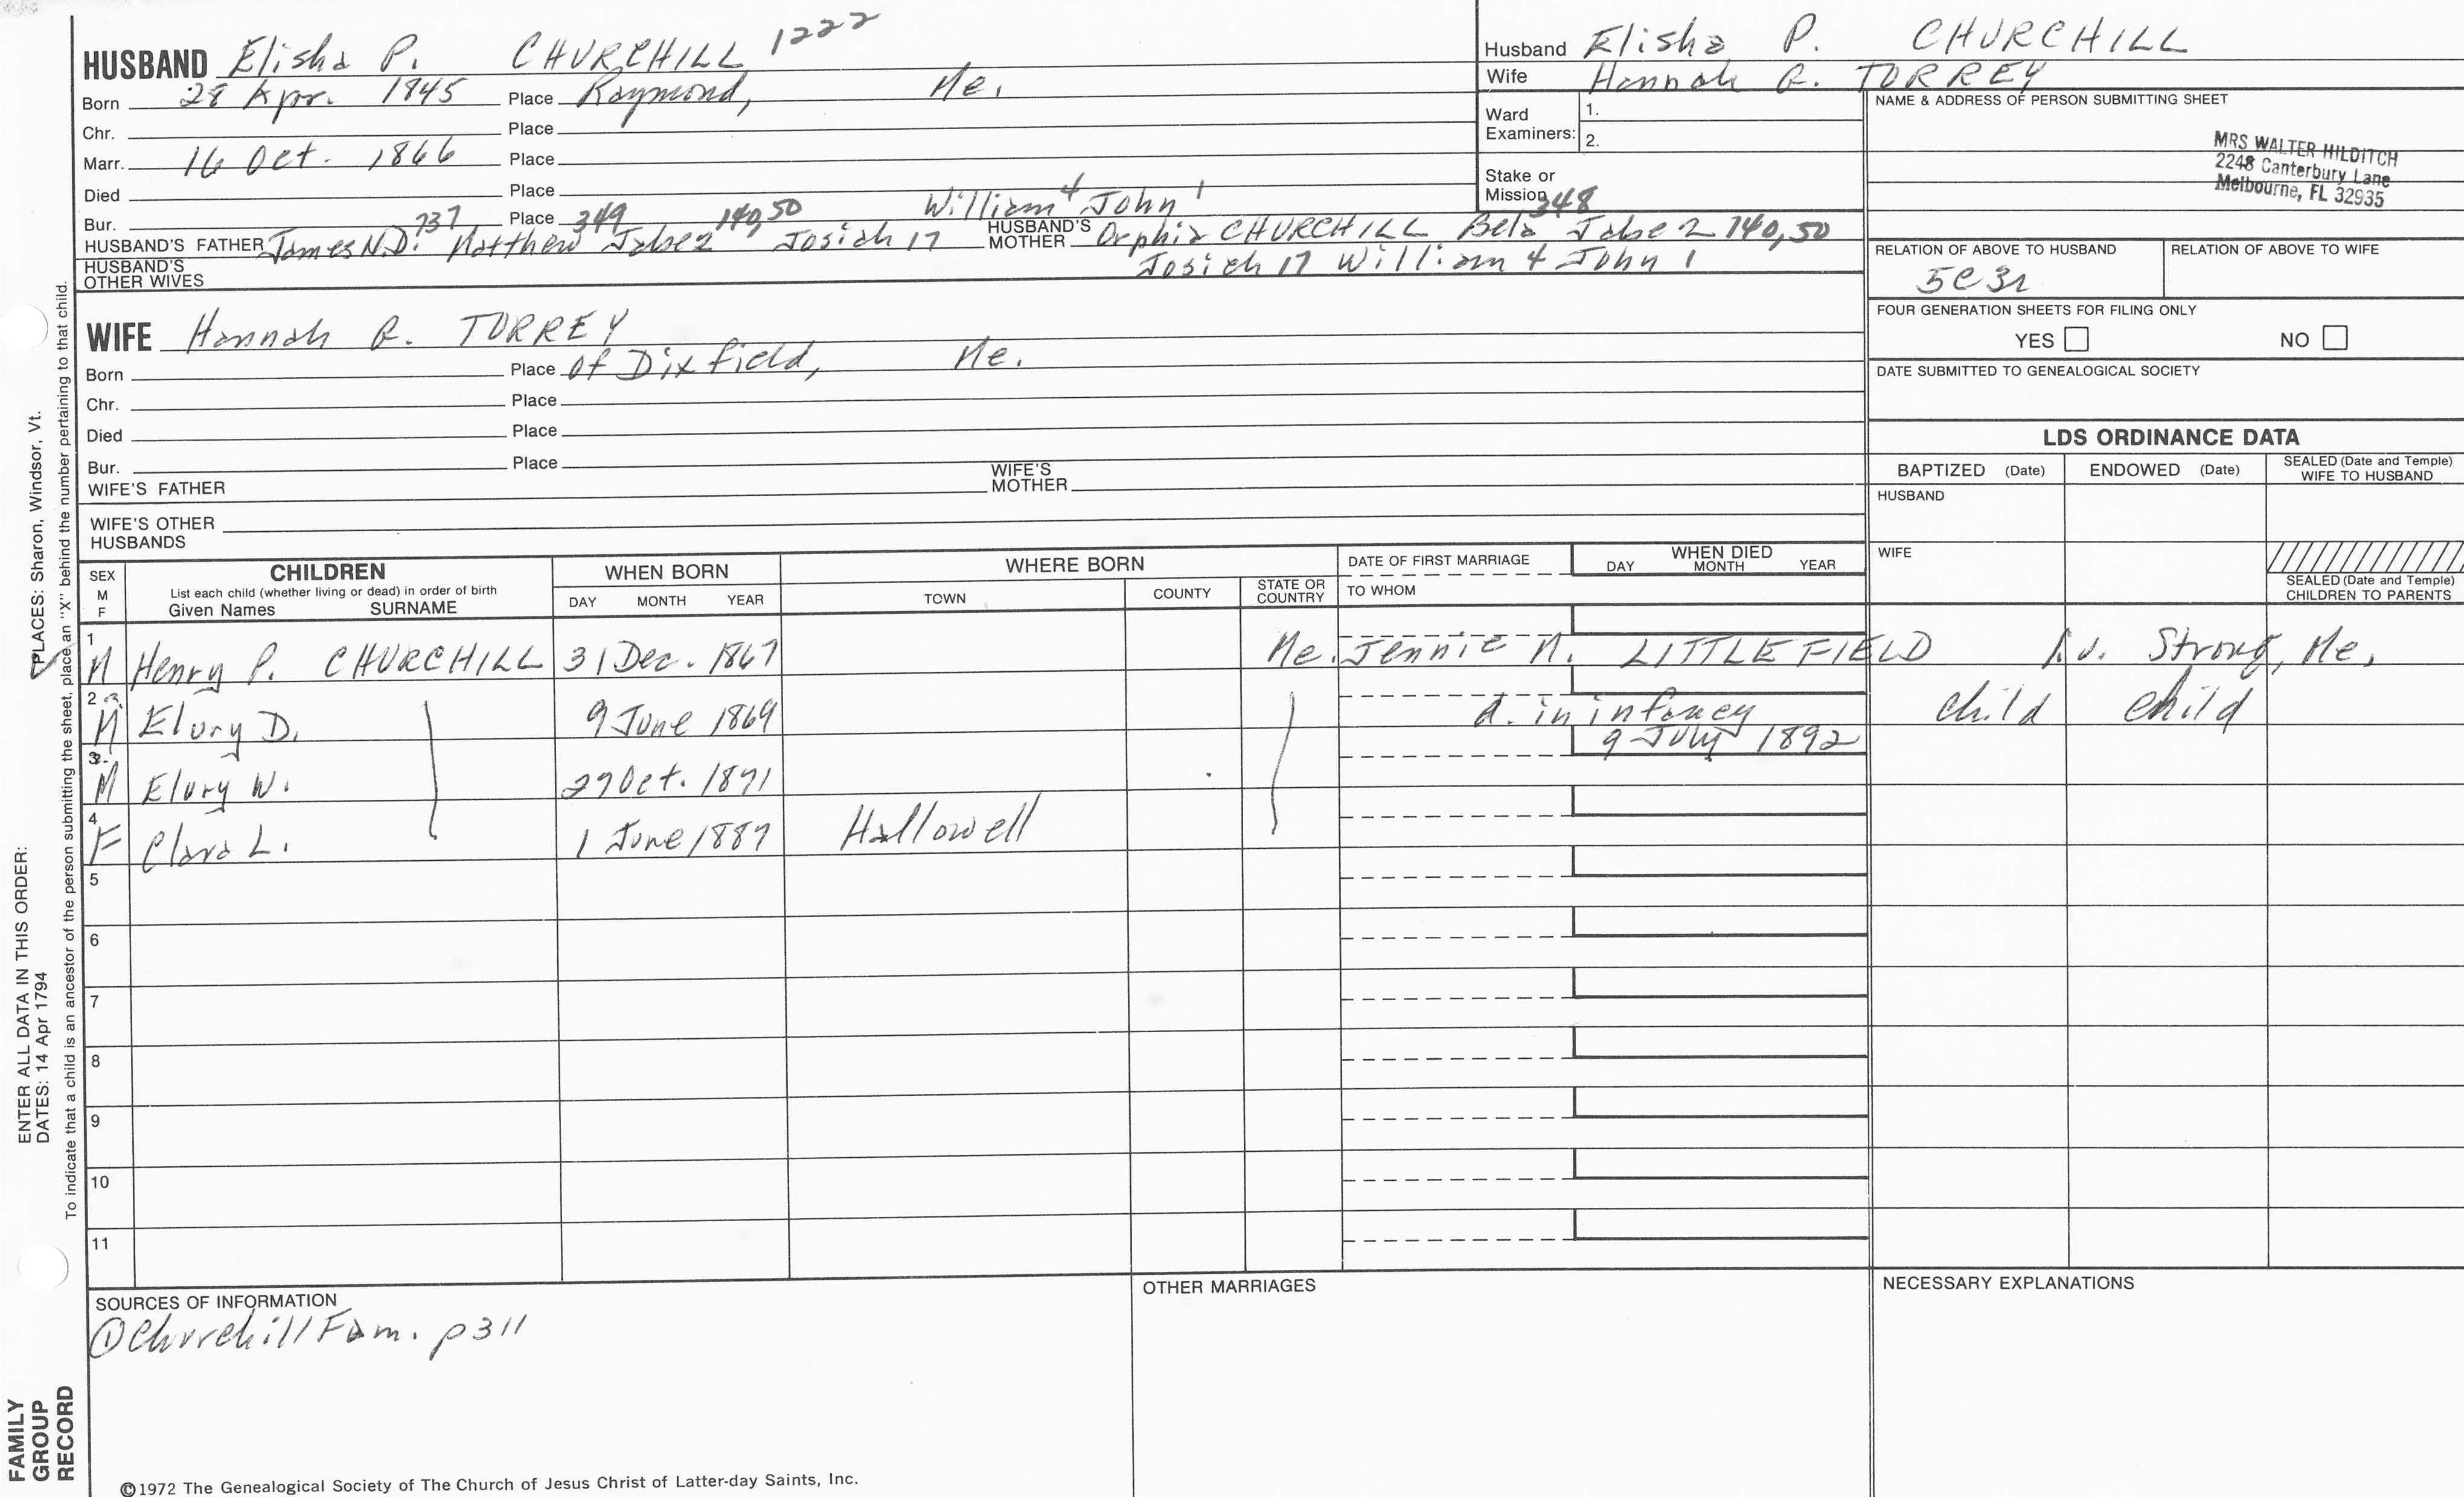 HUSBAND Elisha P. CHURCHILL 1222
Born 28 Apr. 1845 Place Raymond, Me.
Chr. Place
Marr. 16 Oct. 1866 Place
Died Place
Bur. Place
737 349 140,50 William 4 John 1
HUSBAND'S FATHER James N.D. Matthew Jabez Josiah 17
HUSBAND'S MOTHER Orphia CHURCHILL Bela 348 Jabez 140,50
Josiah 17 William 4 John 1
HUSBAND'S OTHER WIVES
WIFE Hannah R. TORREY
Born Place of Dixfield, Me.
Chr. Place
Died Place
Bur. Place
WIFE'S FATHER WIFE'S MOTHER
WIFE'S OTHER HUSBANDS
Husband Elisha P. CHURCHILL
Wife Hannah R. TORREY
Ward Examiners: 1.
2.
Stake or Mission
NAME & ADDRESS OF PERSON SUBMITTING SHEET
MRS WALTER HILDITCH
2248 Canterbury Lane
Melbourne, FL 32935
RELATION OF ABOVE TO HUSBAND RELATION OF ABOVE TO WIFE
5C3r
FOUR GENERATION SHEETS FOR FILING ONLY
YES NO
DATE SUBMITTED TO GENEALOGICAL SOCIETY
LDS ORDINANCE DATA
BAPTIZED (Date) ENDOWED (Date) SEALED (Date and Temple) WIFE TO HUSBAND
HUSBAND
WIFE
SEALED (Date and Temple) CHILDREN TO PARENTS
SEX M F
CHILDREN
List each child (whether living or dead) in order of birth
Given Names SURNAME
WHEN BORN
DAY MONTH YEAR
WHERE BORN
TOWN COUNTY STATE OR COUNTRY
DATE OF FIRST MARRIAGE
TO WHOM
WHEN DIED
DAY MONTH YEAR
1 M Henry P. CHURCHILL 31 Dec. 1867 Me. Jennie N. LITTLEFIELD liv. Strong, Me.
2 M Elury D. 9 June 1869 d. in infancy child child
3 M Elury W. 27 Oct. 1871 9 July 1892
4 F Clara L. 1 June 1887 Hallowell
5
6
7
8
9
10
11
SOURCES OF INFORMATION
① Churchill Fam. p311
OTHER MARRIAGES
NECESSARY EXPLANATIONS
©1972 The Genealogical Society of The Church of Jesus Christ of Latter-day Saints, Inc.
FAMILY GROUP RECORD
ENTER ALL DATA IN THIS ORDER:
DATES: 14 Apr 1794 PLACES: Sharon, Windsor, Vt.
To indicate that a child is an ancestor of the person submitting the sheet, place an "X" behind the number pertaining to that child.